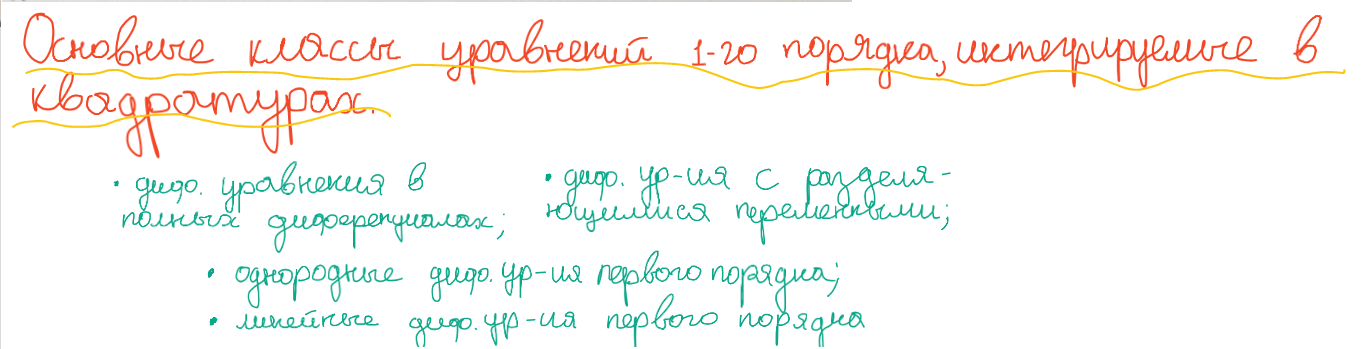 Основные классы уравнений 1-го порядка, интегрируемые в
квадратурах.
· диф. уравнения в
полных диференциалах;
· диф. ур-ия с разделя-
ющимися переменными;
· однородные диф. ур-ия первого порядка;
· линейные диф. ур-ия первого порядка